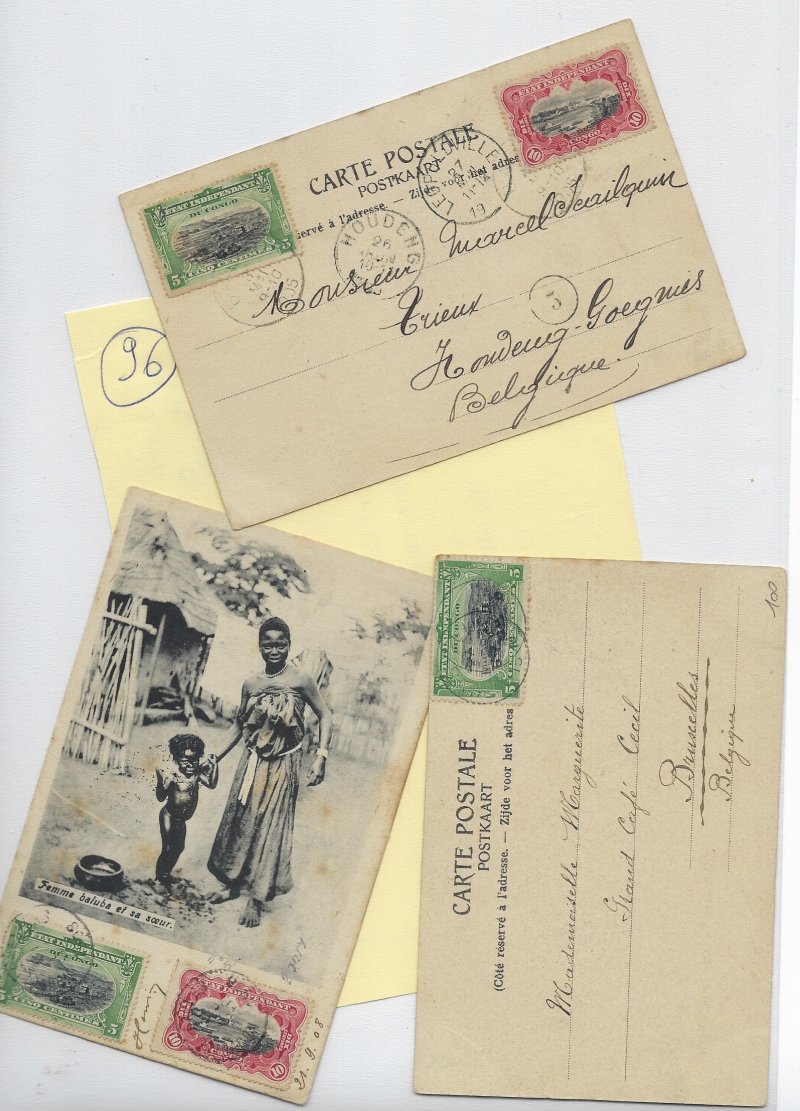 CARTE POSTALE
POSTKAART
servé à l'adresse. — Zijde voor het adres
ETAT INDÉPENDANT
DU CONGO
5 CINQ CENTIMES 5
ETAT INDÉPENDANT
10 CONGO 10
LEOPOLDVILLE
27
HOUDENG
26
Monsieur Marcel Scailquin
Trieux
5
Houdeng-Goegnies
Belgique.
96
Femme baluba et sa sœur.
ETAT INDÉPENDANT
DU CONGO
CINQ CENTIMES 5
ETAT INDÉPENDANT
10 CONGO 10
Henry
21.9.08
100
ETAT INDÉPENDANT
DU CONGO
5 CINQ CENTIMES 5
CARTE POSTALE
POSTKAART
(Côté réservé à l'adresse. — Zijde voor het adres
Mademoiselle Marguerite
Grand Café Cecil
Bruxelles
Belgique